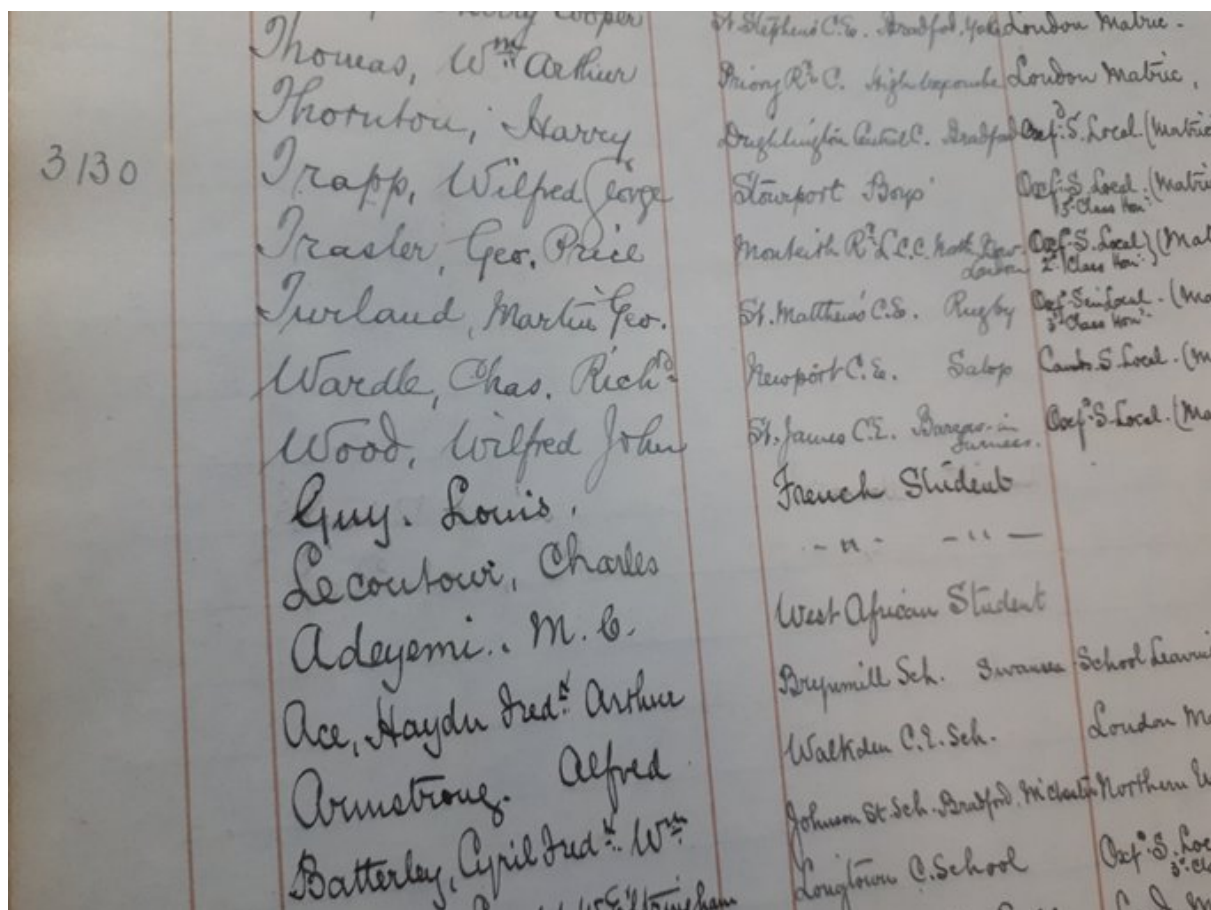 Cooper St. Stephens C.E. Bradford, Yorks London Matric.
Thomas, Wm Arthur Priory Rd C. High Wycombe London Matric,
Thornton, Harry Drighlington Central C. Bradford Oxfd S. Local. (Matric
3130 Trapp, Wilfred George Stourport Boys' Oxf. S. Local. (Matric
3rd Class Hon:
Trasler, Geo. Price Monteith Rd L.C.C. North Bow. Oxf. S. Local) (Mat
London 2nd Class Hon:
Turland, Martin Geo. St. Matthew's C.E. Rugby Oxf. Sen Local. (Ma
3rd Class Hon:
Wardle, Chas. Richd Newport C.E. Salop Camb. S. Local. (M
Wood, Wilfred John St. James C.E. Barrow-in Furness. Oxfd S. Local. (Ma
Guy. Louis. French Student
Lecoutour, Charles - " - - " -
Adeyemi.. M. C. West African Student
Ace, Haydn Fredk Arthur Brynmill Sch. Swansea School Leavin
Armstrong. Alfred Walkden C.E. Sch. London M
Batterley, Cyril Fredk Wm Johnson St. Sch. Bradford. Northern
Longtown C. School Oxfd S. Loc
3rd Cl